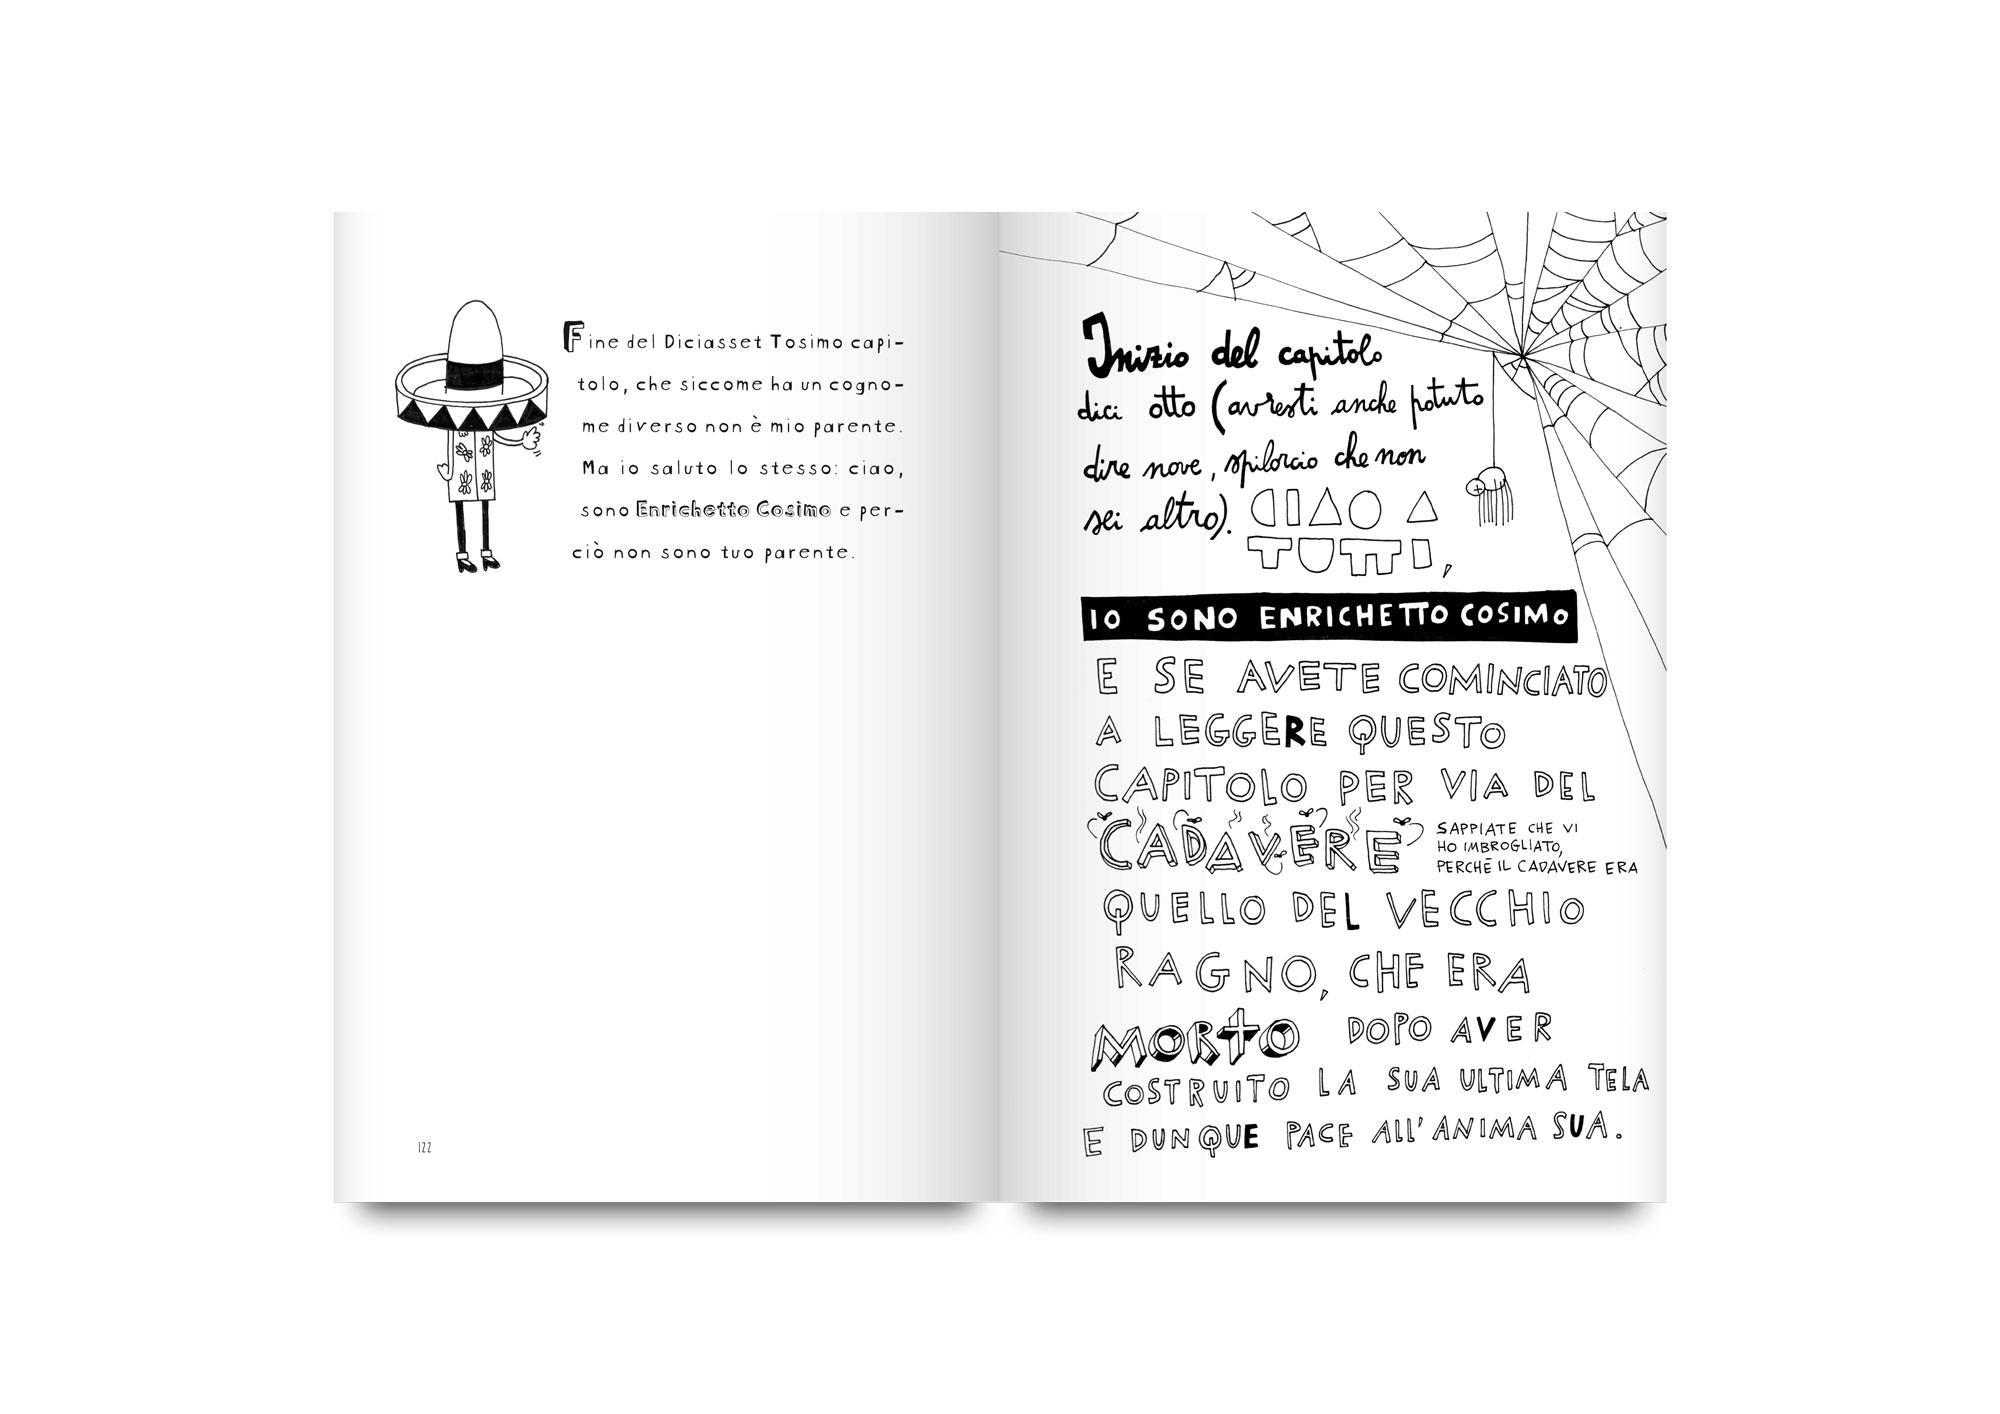 Fine del Diciasset Tosimo capi-
tolo, che siccome ha un cogno-
me diverso non è mio parente.
Ma io saluto lo stesso: ciao,
sono Enrichetto Cosimo e per-
ciò non sono tuo parente.
122
Inizio del capitolo
dici otto (avresti anche potuto
dire nove, spilorcio che non
sei altro).
CIAO A
TUTTI,
IO SONO ENRICHETTO COSIMO
E SE AVETE COMINCIATO
A LEGGERE QUESTO
CAPITOLO PER VIA DEL
CADAVERE
SAPPIATE CHE VI
HO IMBROGLIATO,
PERCHÉ IL CADAVERE ERA
QUELLO DEL VECCHIO
RAGNO, CHE ERA
MORTO DOPO AVER
COSTRUITO LA SUA ULTIMA TELA
E DUNQUE PACE ALL'ANIMA SUA.